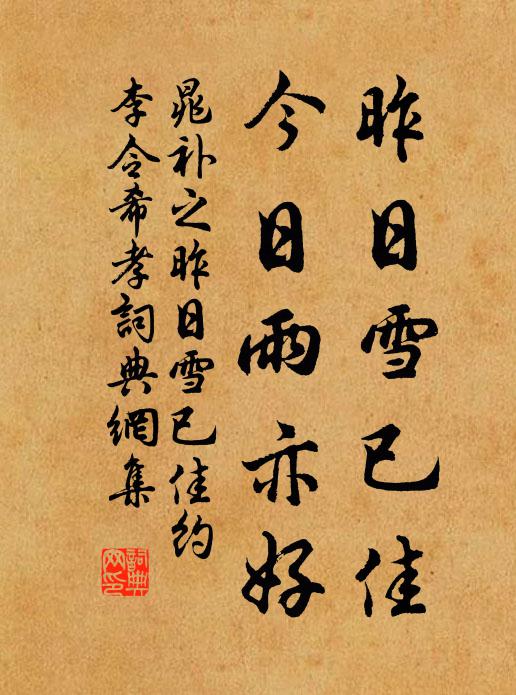 昨日雪已佳
今日雨亦好
晁补之昨日雪已佳约
李令希孝詞典網集
詞典网印